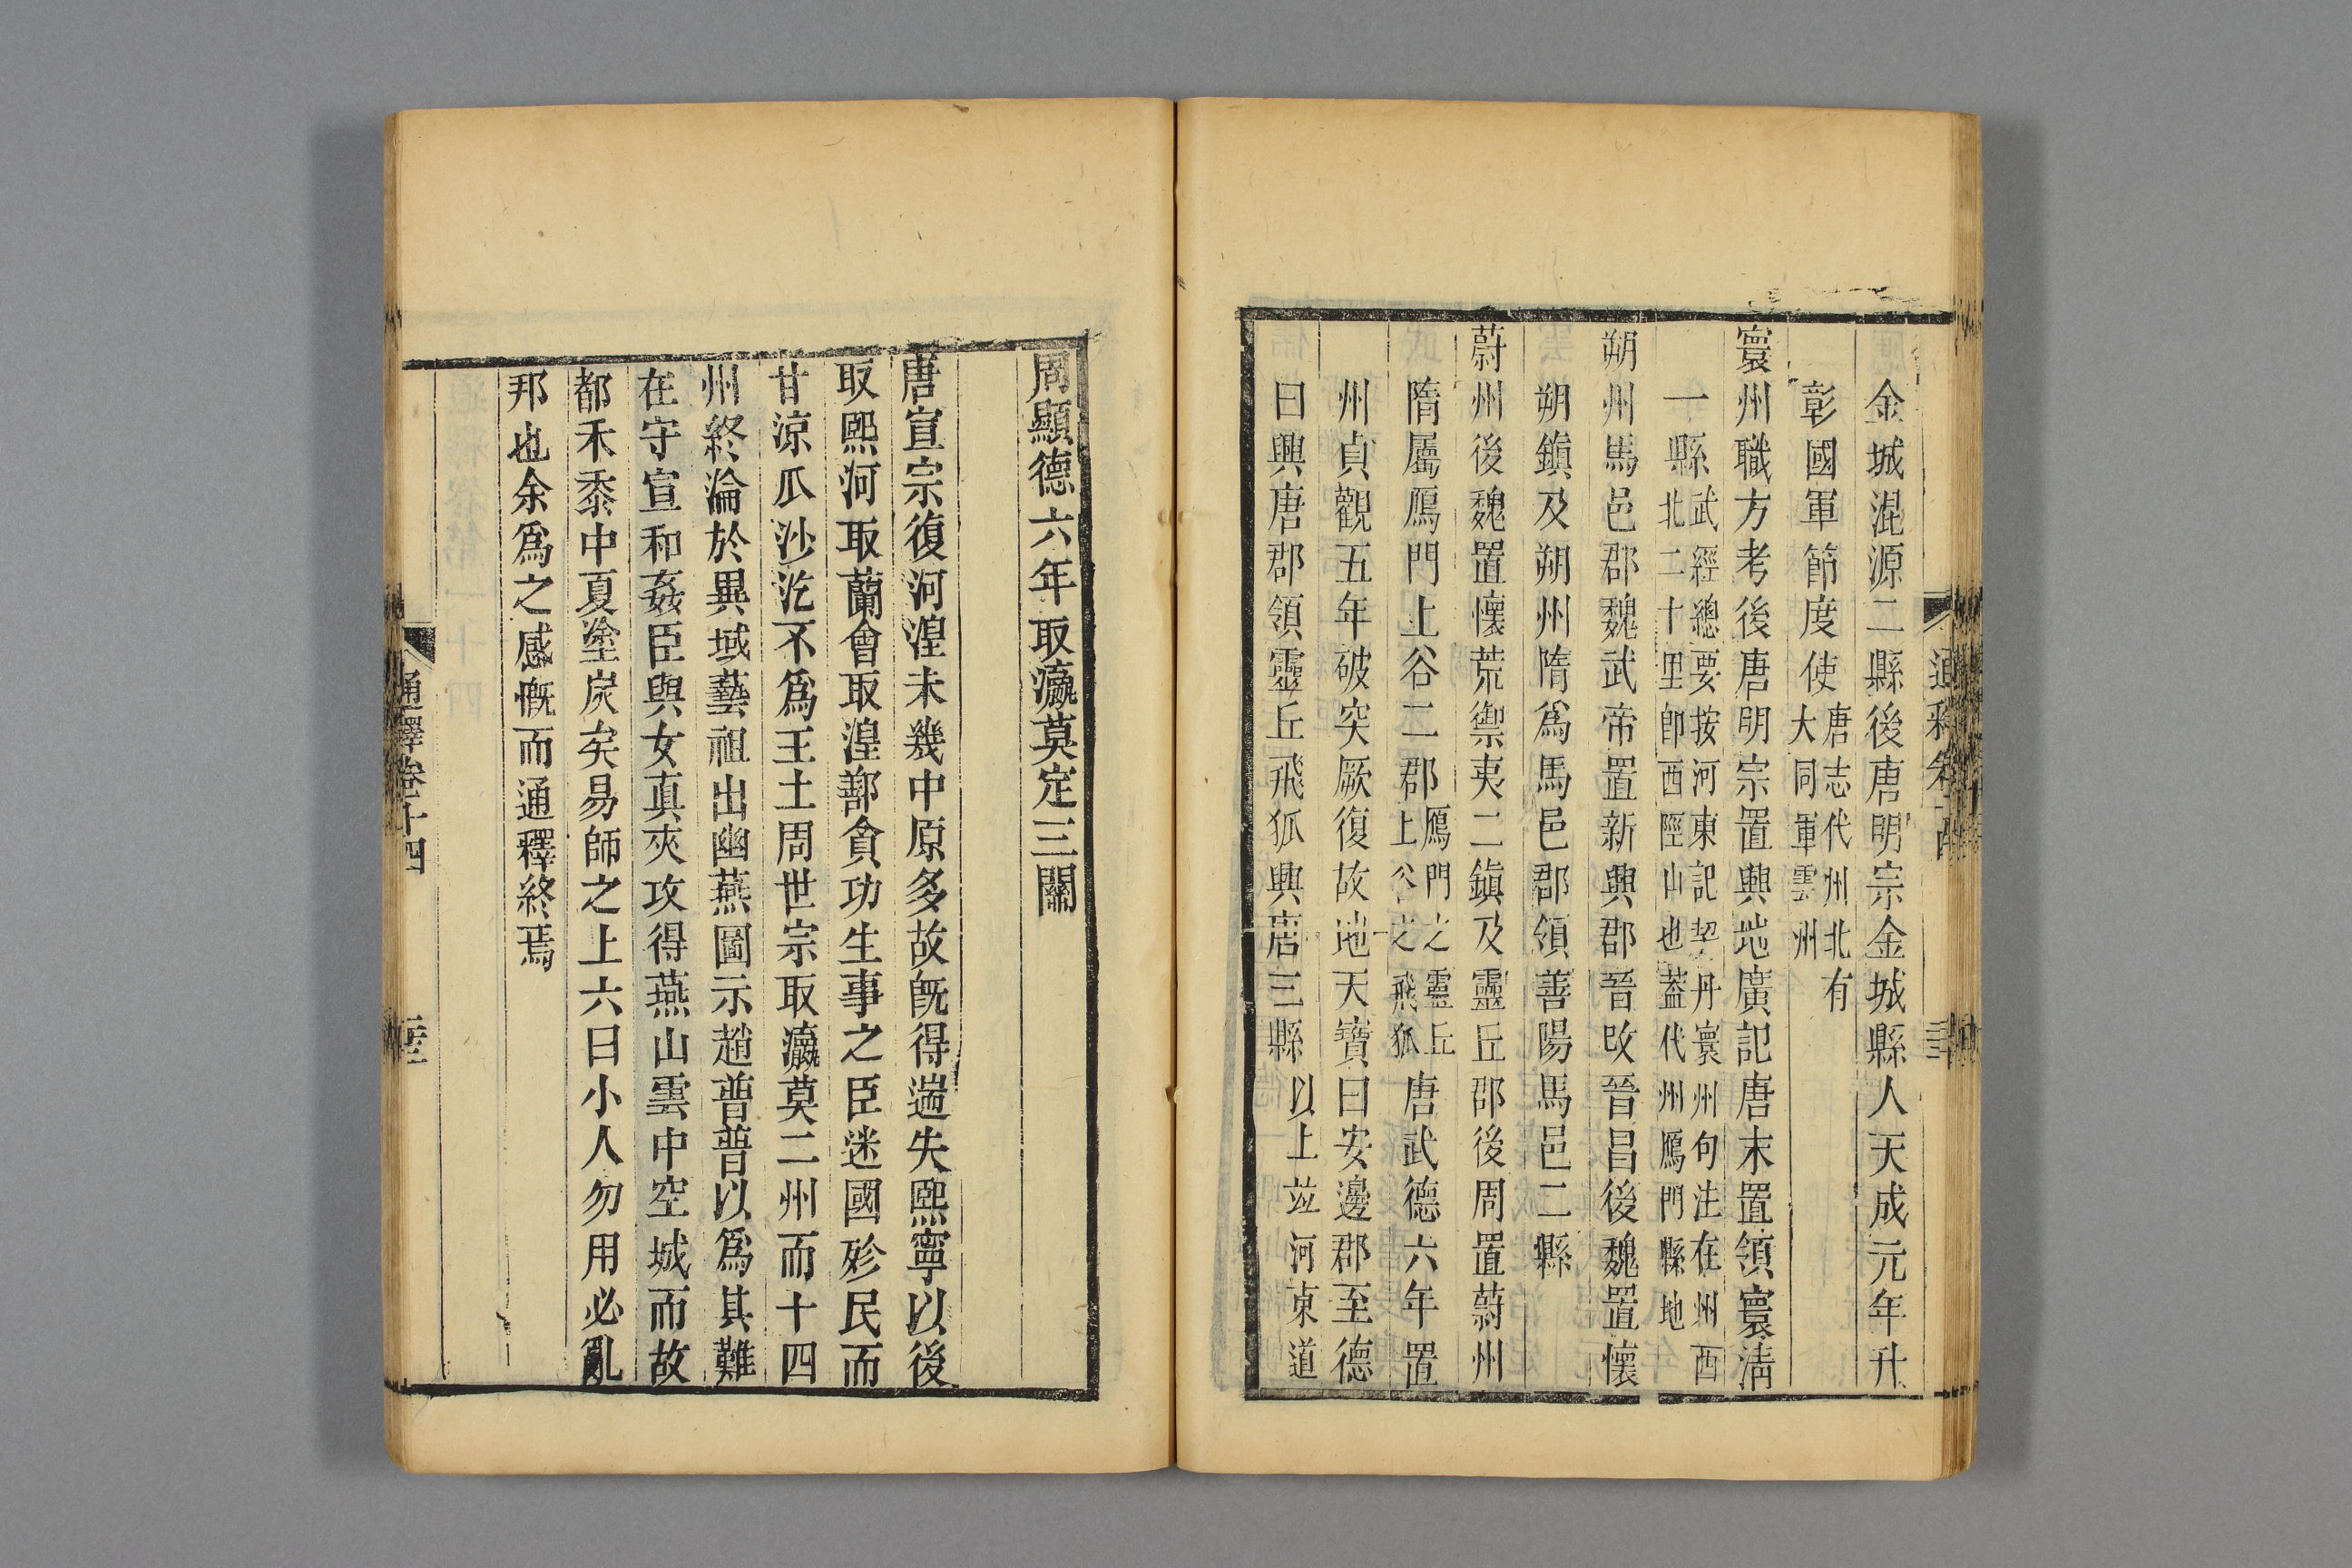 金城混源二縣後唐明宗金城縣人天成元年升
彰國軍節度使唐志代州北有大同軍雲州
寰州職方考後唐明宗置輿地廣記唐末置領寰清
一縣武經總要按河東記契丹寰州句注在州西北二十里卽西陘山也蓋代州鴈門縣地
朔州馬邑郡魏武帝置新興郡晉改晉昌後魏置懷
朔鎭及朔州隋爲馬邑郡領善陽馬邑二縣
蔚州後魏置懷荒禦夷二鎭及靈丘郡後周置蔚州
隋屬鴈門上谷二郡鴈門之靈丘上谷之飛狐唐武德六年置
州貞觀五年破突厥復故地天寶曰安邊郡至德
曰興唐郡領靈丘飛狐興唐三縣以上竝河東道
周顯德六年取瀛莫定三關
唐宣宗復河湟未幾中原多故旣得遄失熙寧以後
取熙河取蘭會取湟鄯貪功生事之臣迷國殄民而
甘涼瓜沙訖不爲王土周世宗取瀛莫二州而十四
州終淪於異域藝祖出幽燕圖示趙普普以爲其難
在守宣和姦臣與女眞夾攻得燕山雲中空城而故
都禾黍中夏塗炭矣易師之上六曰小人勿用必亂
邦也余爲之感慨而通釋終焉
通釋卷十四